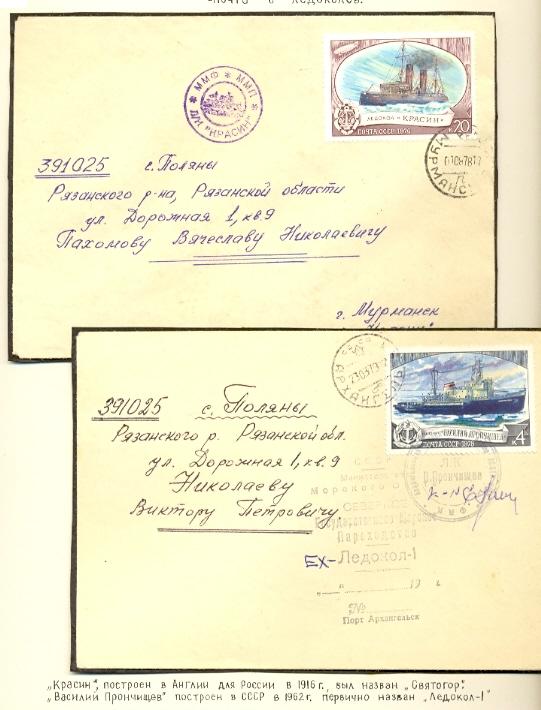 ПОЧТА О ЛЕДОКОЛЕ.
* ММФ * ММП *
Л/К "КРАСИН"
ЛЕДОКОЛ «КРАСИН»
ПОЧТА СССР 1976
20
МУРМАНСК
391025 с. Поляны
Рязанского р-на, Рязанской области
ул. Дорожная 1, кв. 9
Пахомову Вячеславу Николаевичу
г. Мурманск
АРХАНГЕЛЬСК
ВАСИЛИЙ ПРОНЧИЩЕВ
ПОЧТА СССР 1978
4К
391025 с. Поляны
Рязанского р. Рязанской обл.
ул. Дорожная 1, кв. 9
Николаеву
Виктору Петровичу.
Л/К
В. Прончищев
СССР
Министерство
Морского
СЕВЕРНОЕ
Государственное Морское
Пароходство
EX-Ледокол-1
" " 19 г.
№
Порт Архангельск
„Красин", построен в Англии для России в 1916 г., был назван „Святогор".
„Василий Прончищев" построен в СССР в 1962 г. первично назван „Ледокол-1"